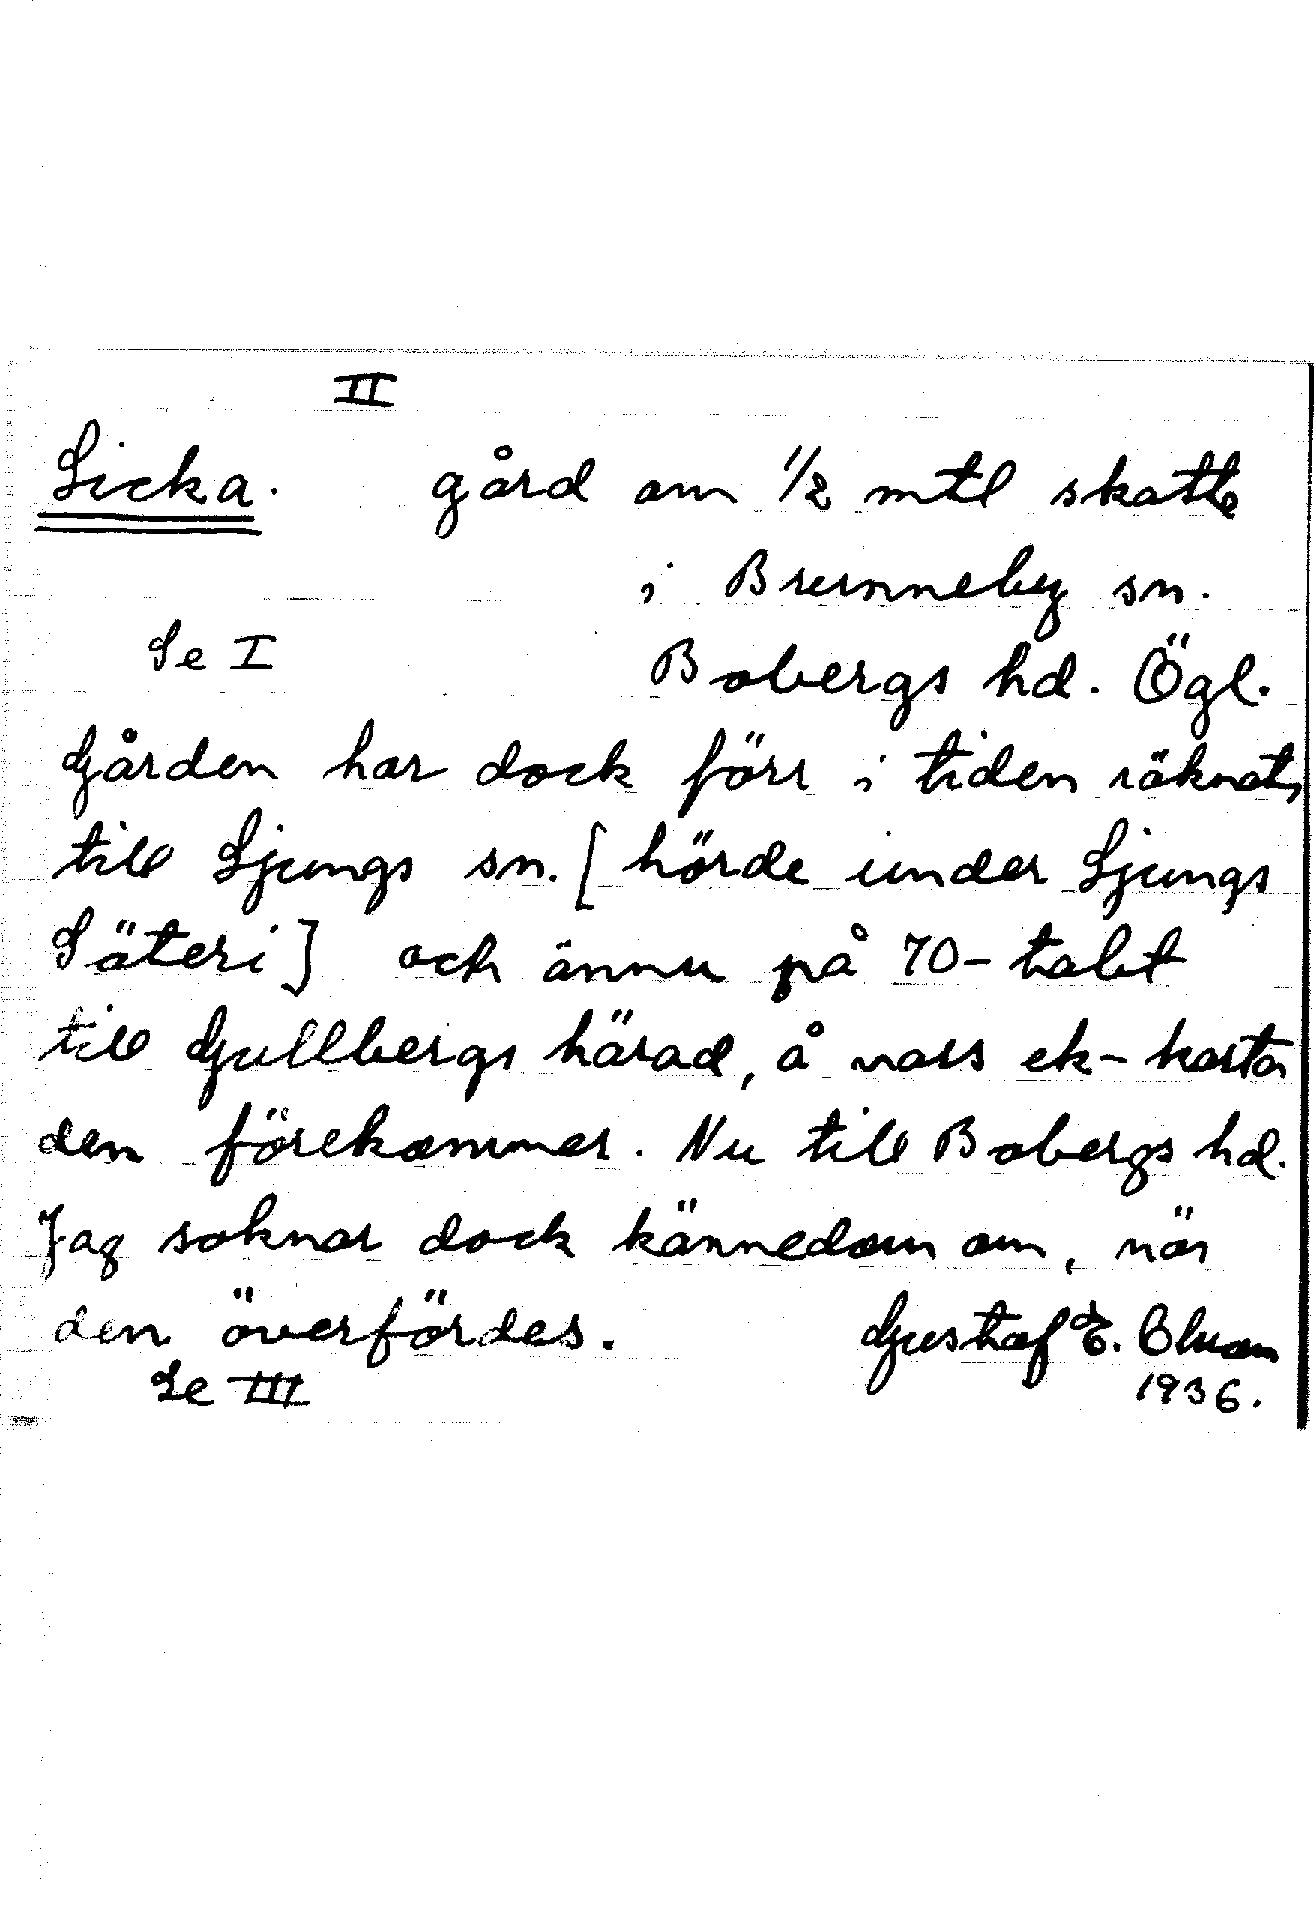 II
Sicka. gård om 1/2 mtl skatte
i Brunneby sn.
Se I Bobergs hd. Ögl.
Gården har dock förr i tiden räknats
till Ljungs sn. [hörde under Ljungs
Säteri] och ännu på 70-talet
till Gullbergs härad, å vars ek-karta
den förekommer. Nu till Bobergs hd.
Jag saknar dock kännedom om, när
den överfördes. Gustaf E.
Se III 1936.